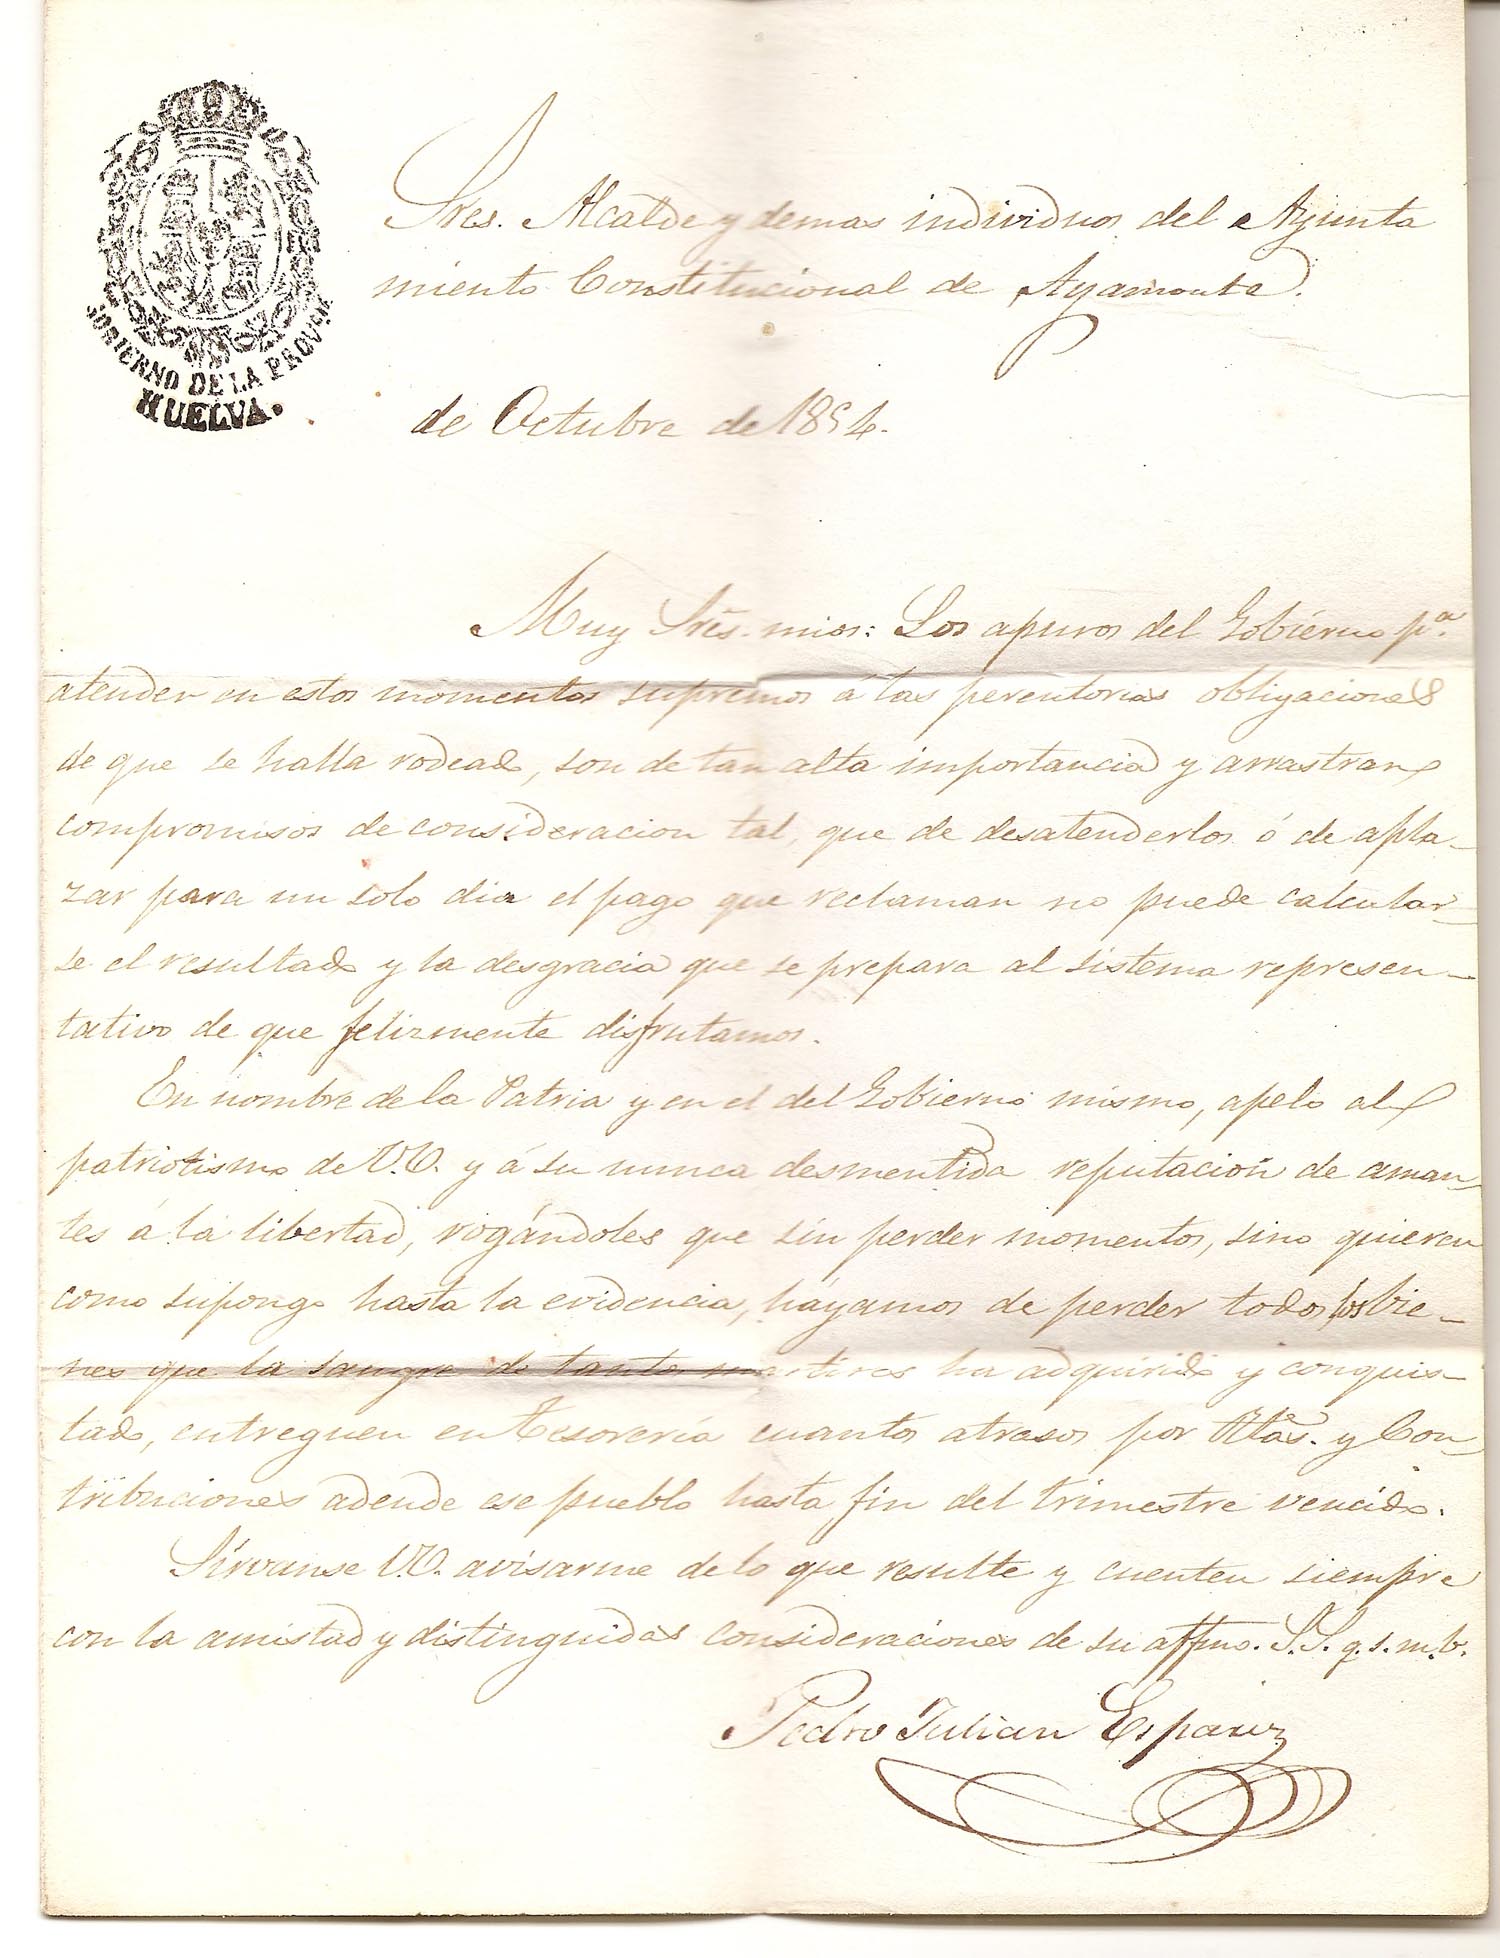 GOBIERNO DE LA PROVª DE
HUELVA.
Sres. Alcalde y demas individuos del Ayunta
miento Constitucional de Ayamonte.
de Octubre de 1854.
Muy Srēs. mios: Los apuros del Gobiérno pª.
atender en estos momentos supremos á las perentorias obligaciones
de que se halla rodeado, son de tan alta importancia y arrastran
compromisos de consideracion tal, que de desatenderlos ó de apla-
zar para un solo dia el pago que reclaman no puede calcular-
se el resultado y la desgracia que se prepara al sistema represen-
tativo de que felizmente disfrutamos.
En nombre de la Patria y en el del Gobierno mismo, apelo al
patriotismo de V.V. y á su nunca desmentida reputacion de aman-
tes á la libertad, rogándoles que sin perder momentos, sino quieren
como supongo hasta la evidencia, háyamos de perder todos los bie-
nes que la sangre de tantos martires ha adquirido y conquis-
tado, entreguen en Tesorería cuantos atrasos por Rtas. y Con-
tribuciones adeude ese pueblo hasta fin del trimestre vencido.
Sírvanse V.V. avisarme de lo que resulte y cuenten siempre
con la amistad y distinguidas consideraciones de su affmo. S.S. q.s.m.b.
Pedro Julian Espariz